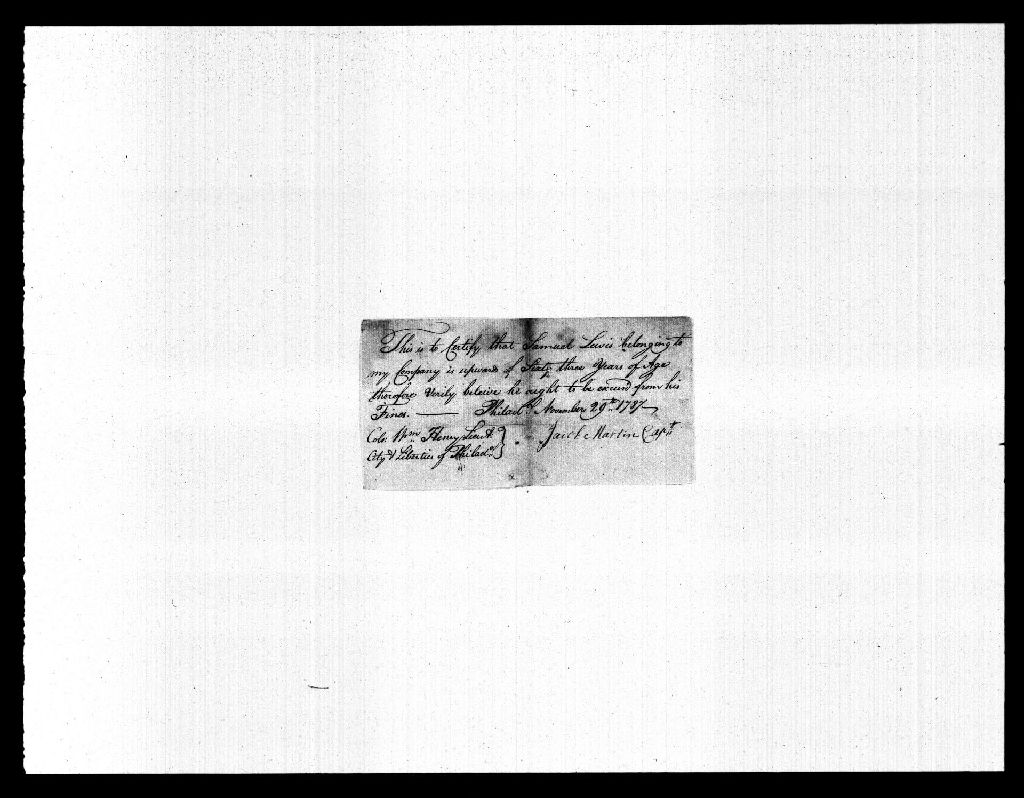 This is to Certify that Samuel Lewis belonging to
my Company is upwards of Sixty three Years of Age
therefore Verily beleive he ought to be excused from his
Fines. — Philad.ª November 29th 1787
Colo. Wm Henry Lieut
City & Liberties of Philad.ª
Jacob Martin Capt